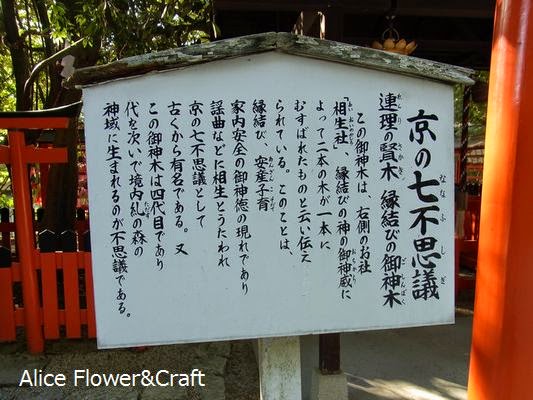 京の七不思議
連理の賢木 縁結びの御神木
この御神木は、右側のお社
「相生社」、縁結びの神の御神威に
よって二本の木が一本に
むすばれたものと云い伝え
られている。このことは、
縁結び、安産子育
家内安全の御神徳の現れであり
謡曲などに相生とうたわれ
京の七不思議として
古くから有名である。又
この御神木は四代目であり
代を次いで境内糺の森の
神域に生まれるのが不思議である。
Alice Flower&Craft